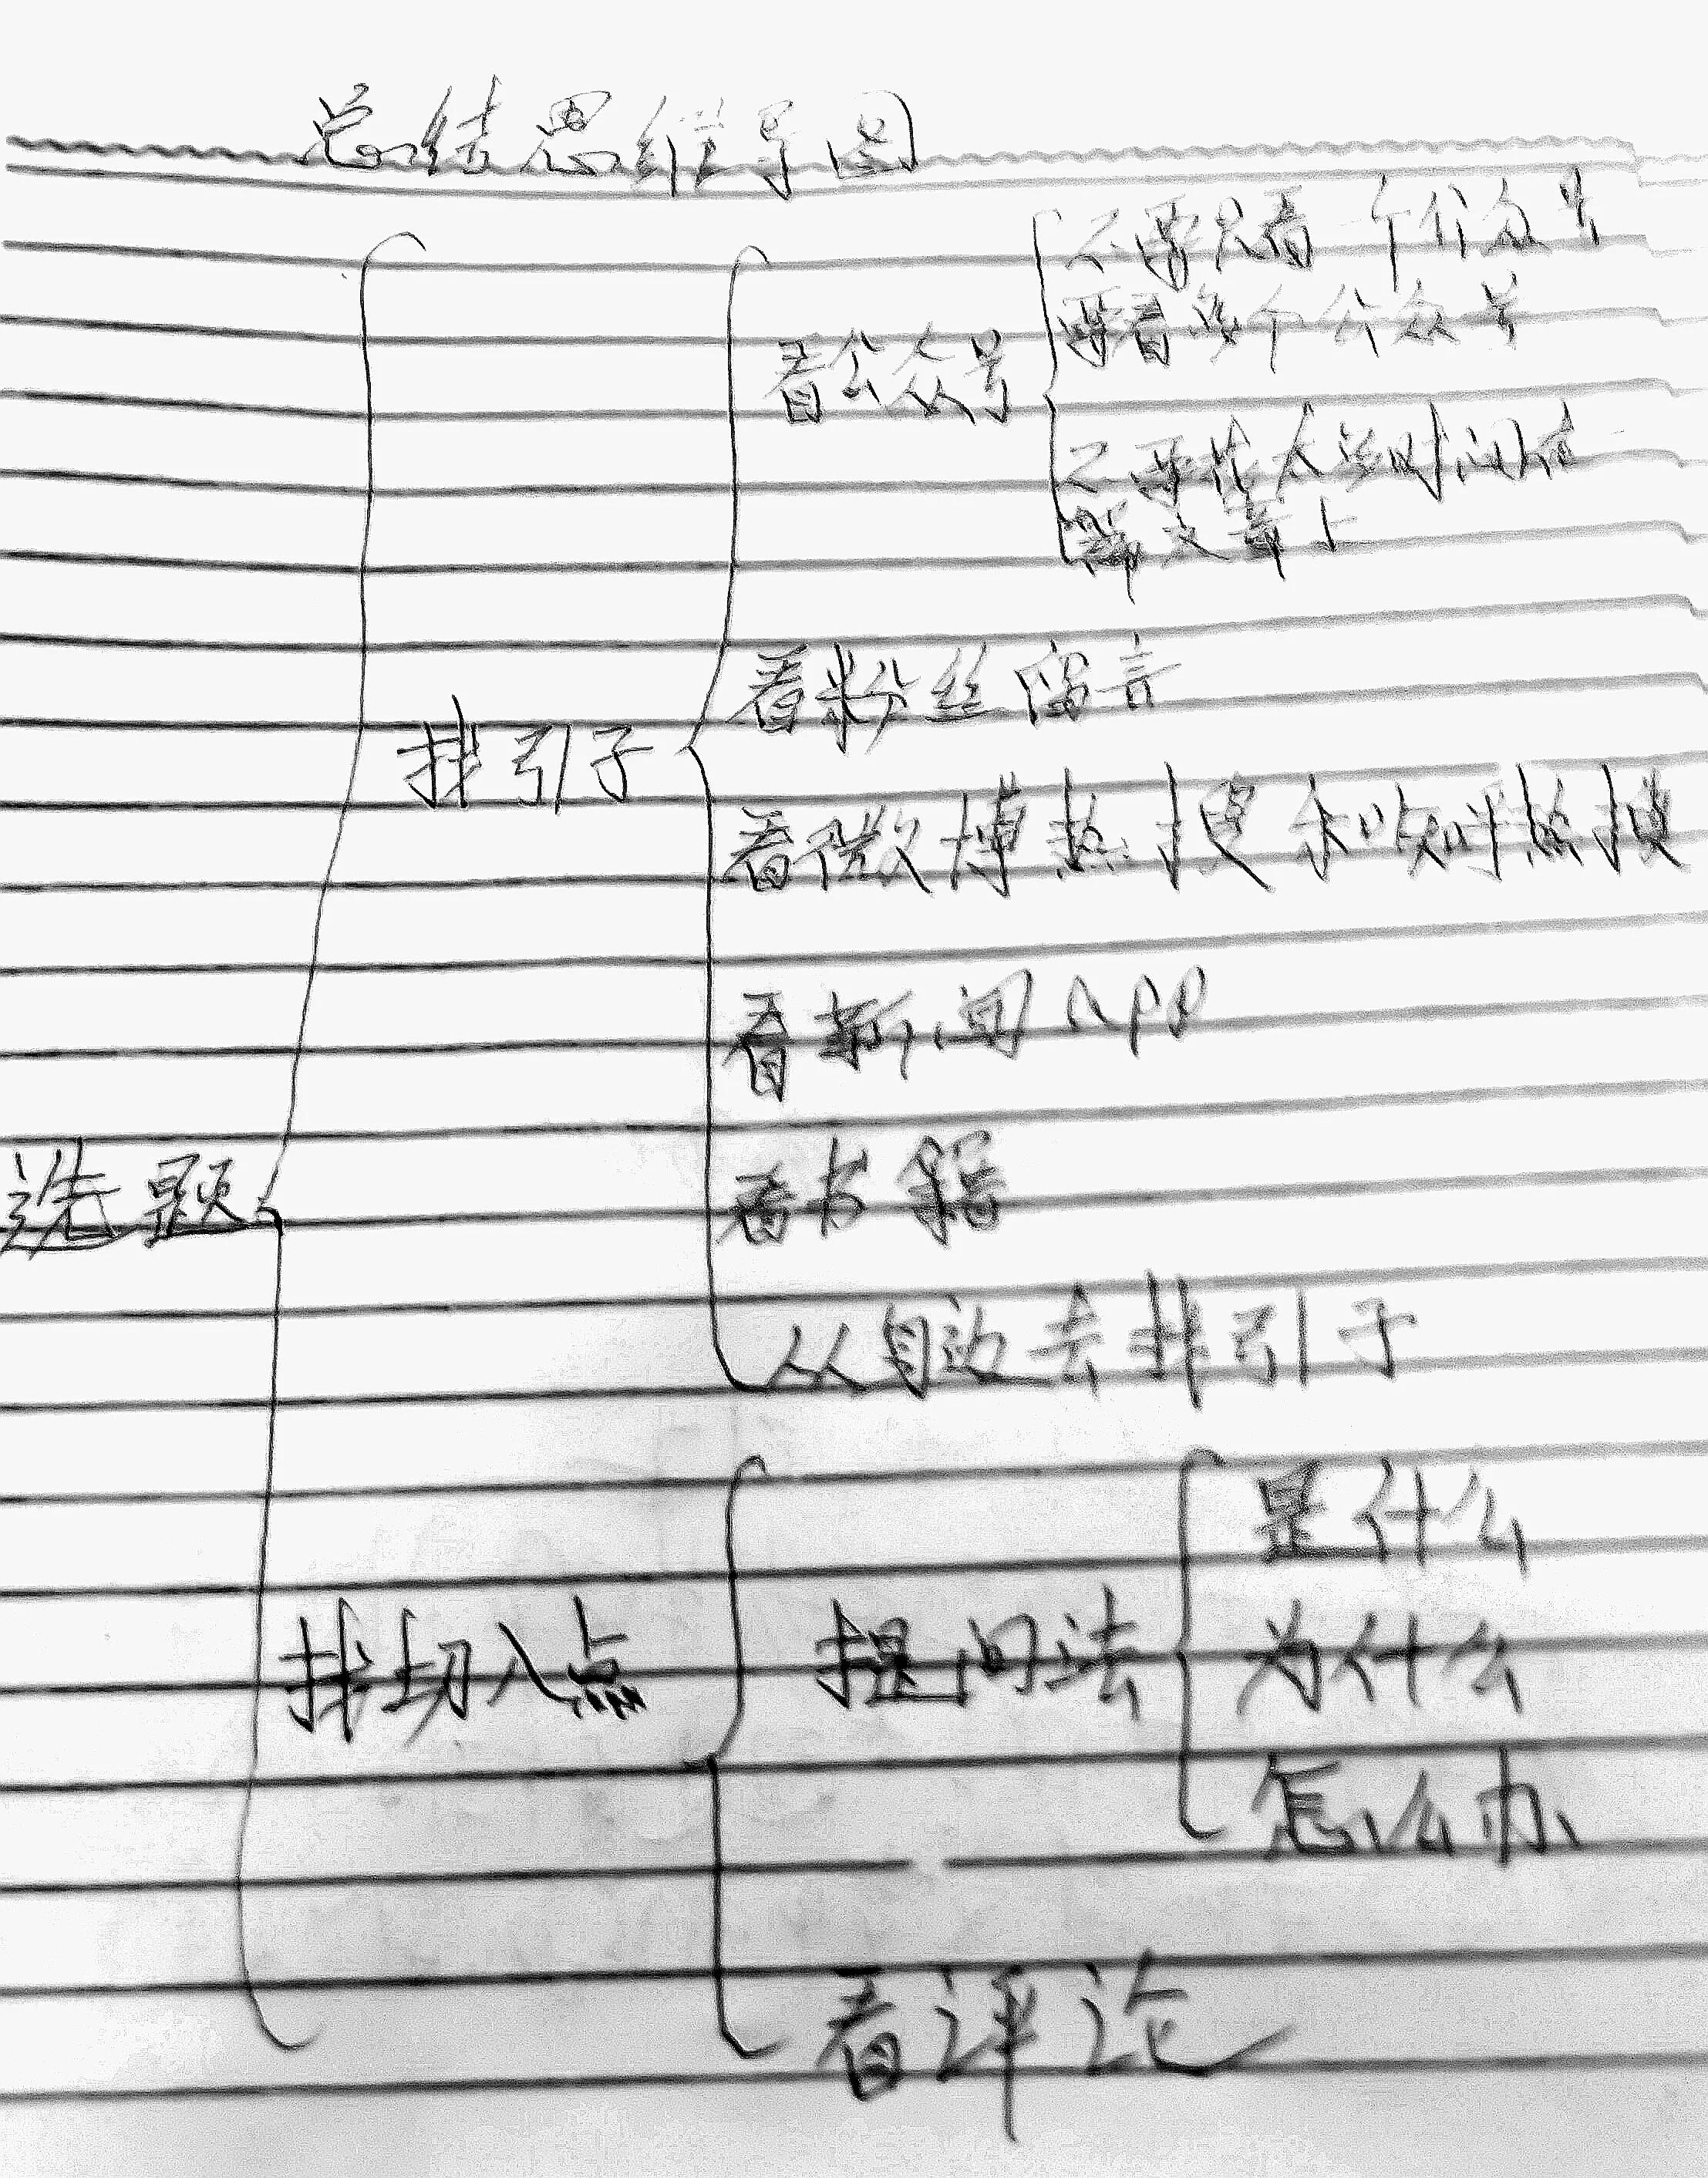 总结思维导图
不要只看一个公众号
要看多个公众号
看公众号
不要花太多时间在
篇文章上
看粉丝留言
找引子
看微博热搜和知乎热搜
看新闻APP
看书籍
选题
从自身去找引子
是什么
找切入点
提问法
为什么
怎么办
看评论